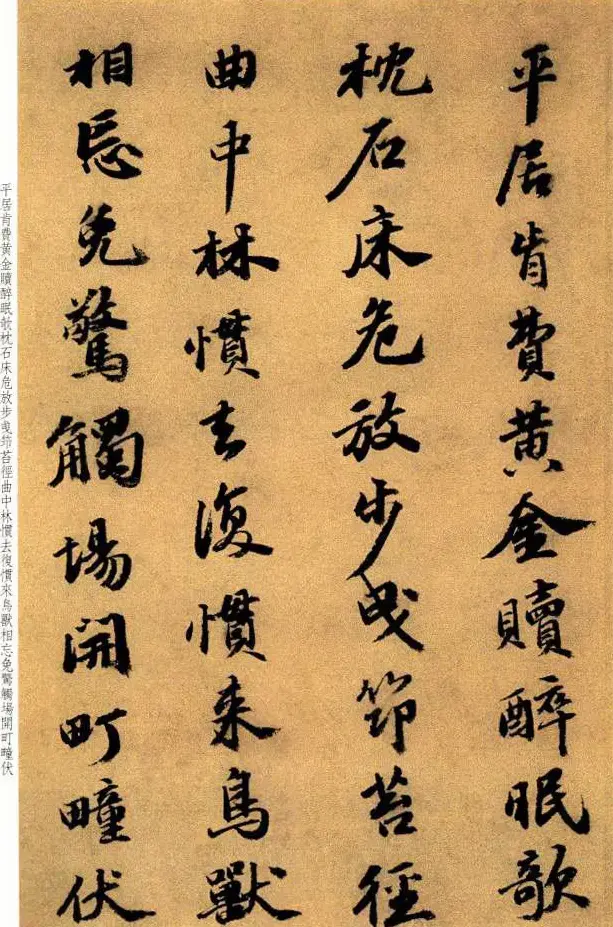 平居肯費黄金贖醉眠欹
枕石床危放步曳筇苔徑
曲中林慣去復慣来鳥獸
相忘免驚觸場開町疃伏
平居肯費黄金贖醉眠欹枕石床危放步曳筇苔徑曲中林慣去復慣來鳥獸相忘免驚觸場開町疃伏